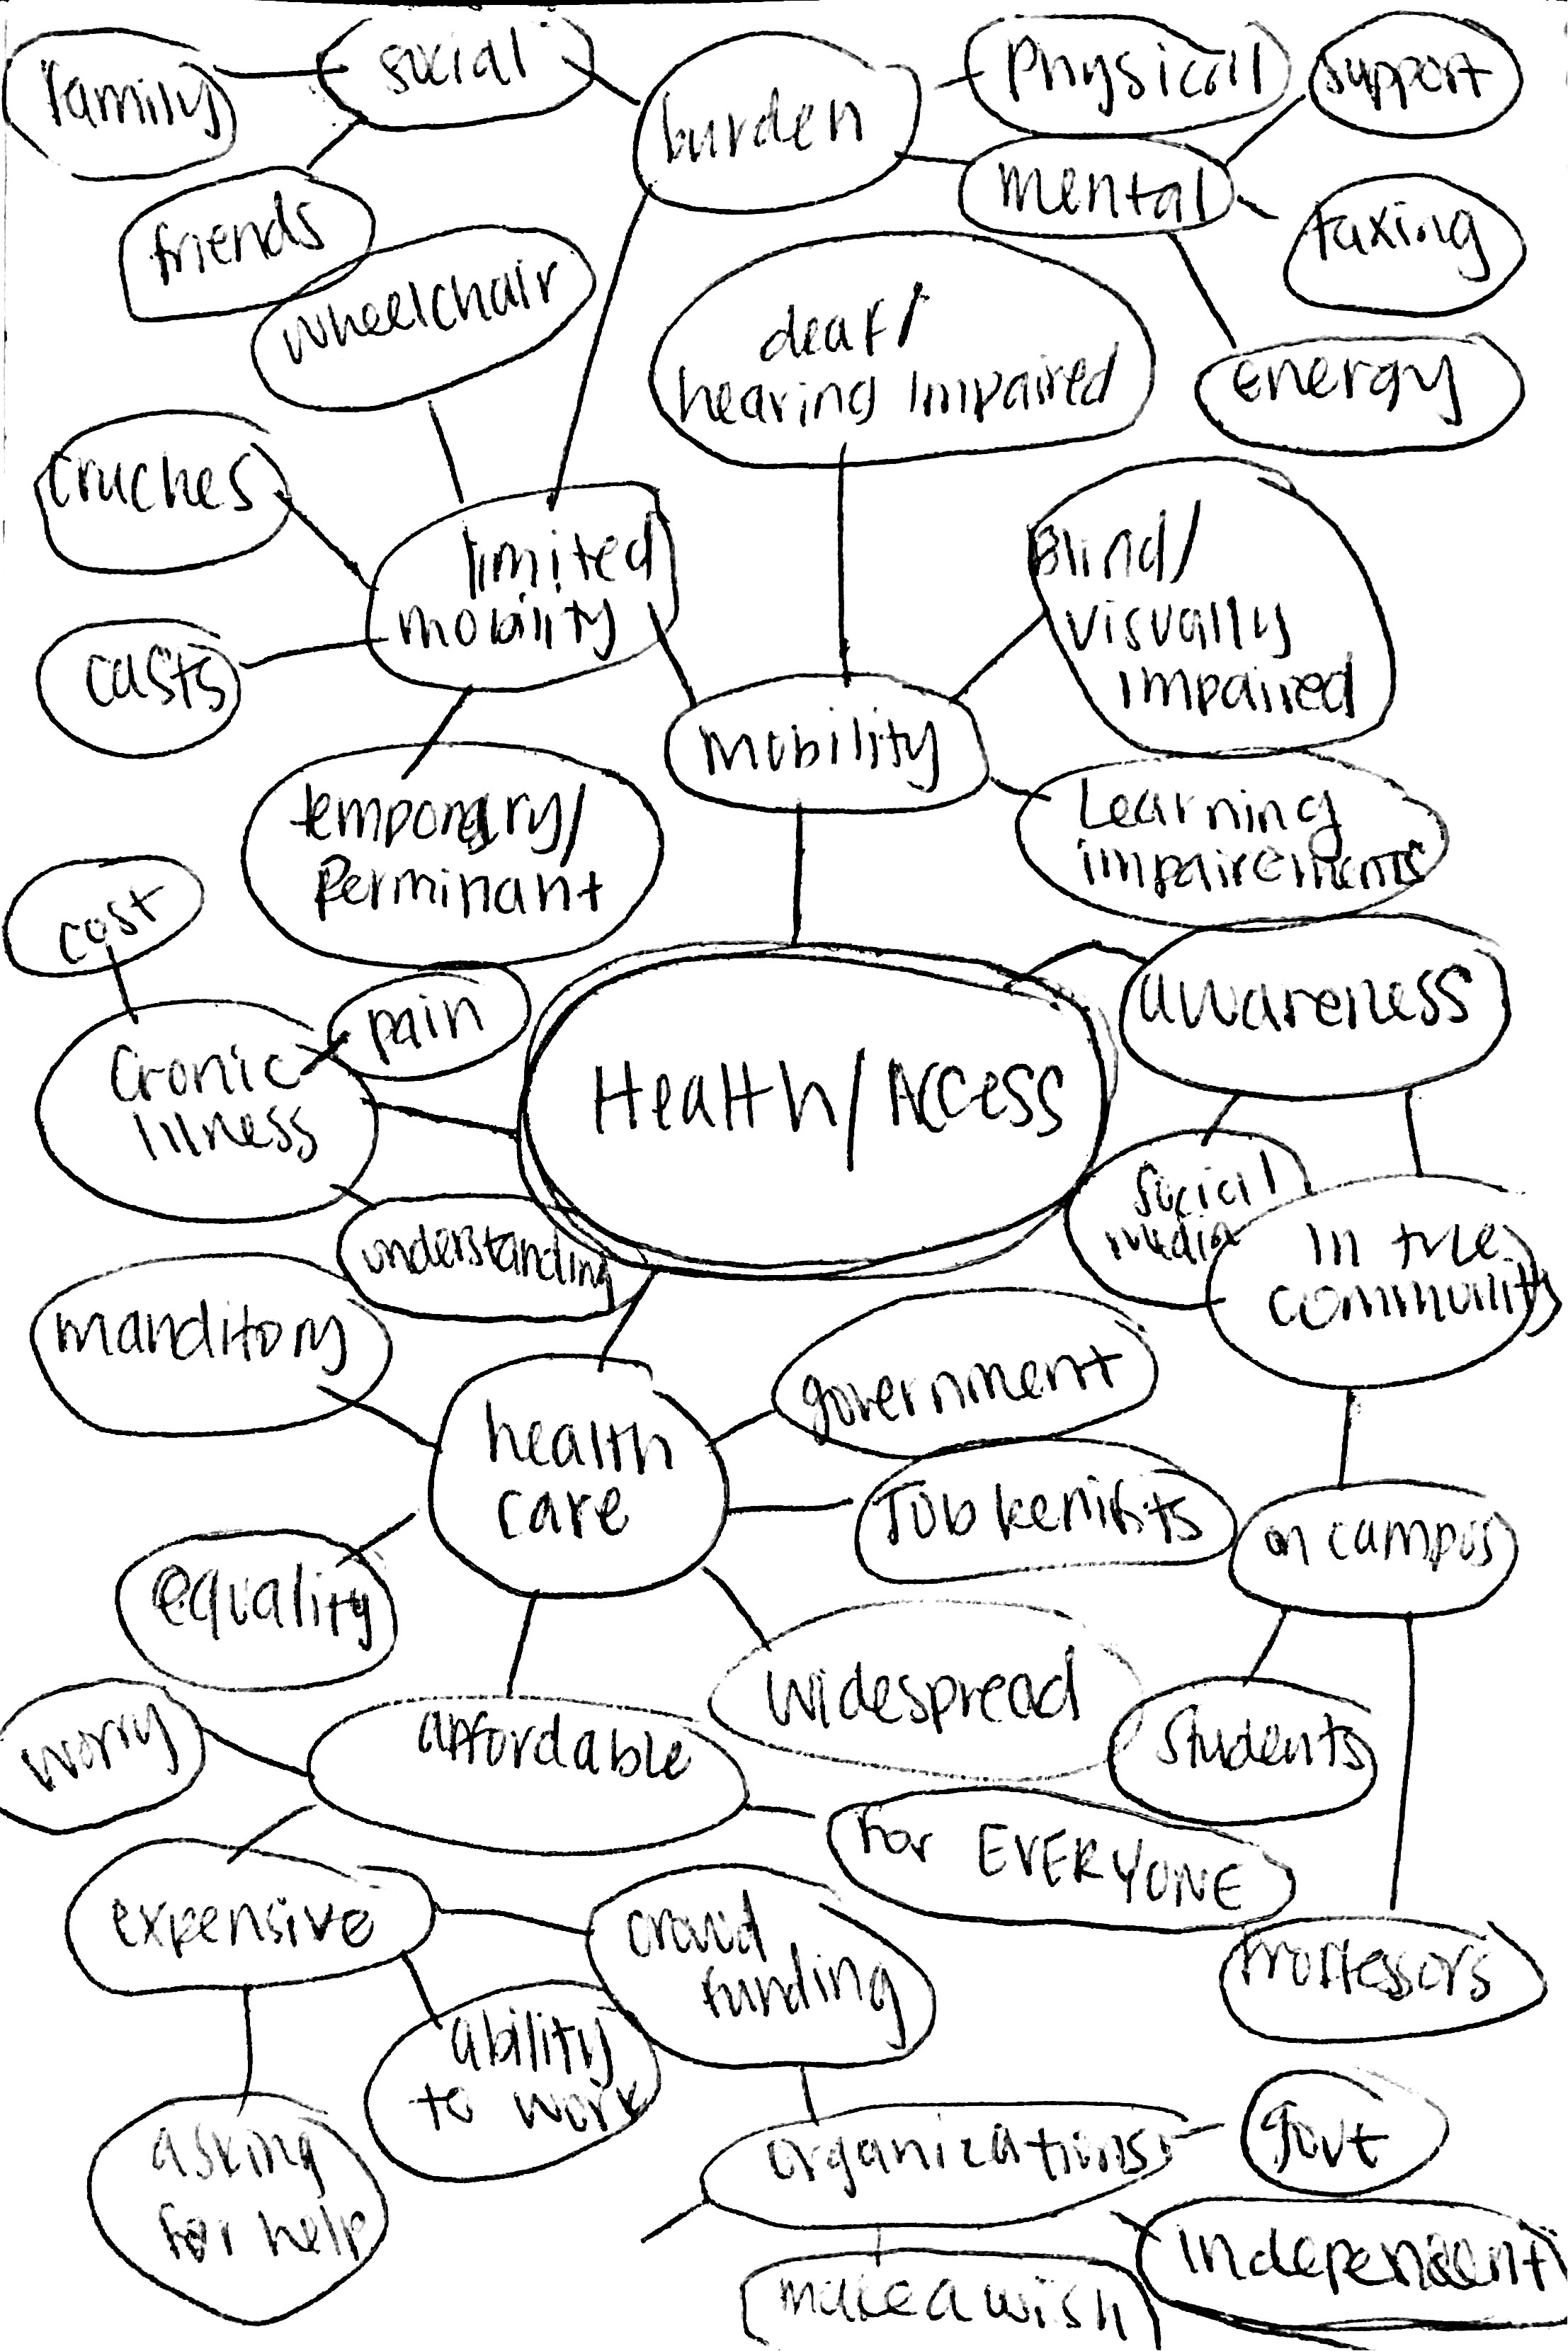 family
social
burden
Physical
support
mental
friends
taxing
wheelchair
deaf/
hearing impaired
energy
cruches
limited
mobility
Blind/
visually
impaired
casts
mobility
temporary/
Perminant
Learning
impairements
cost
pain
awareness
Cronic
illness
Health/Access
social
media
in the
community
understanding
manditory
government
health
care
Job benifits
on campus
equality
widespread
students
worry
affordable
for EVERYONE
expensive
crowd
funding
Proffessors
ability
to work
asking
for help
organizations
govt
independent
make a wish